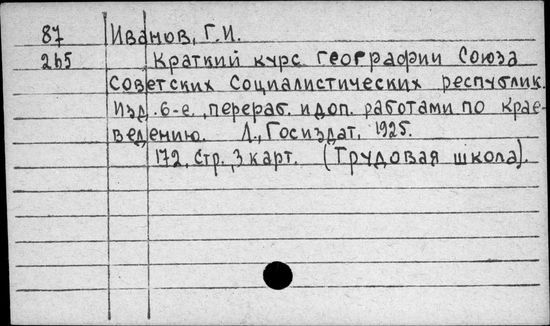 87 Иванов, Г.И.
265 Краткий курс географии Союза
Советских Социалистических республик.
Изд. 6-е, перераб. и доп. работами по крае-
ведению. Л., Госиздат, 1925.
172, стр., 3 карт. (Трудовая школа).